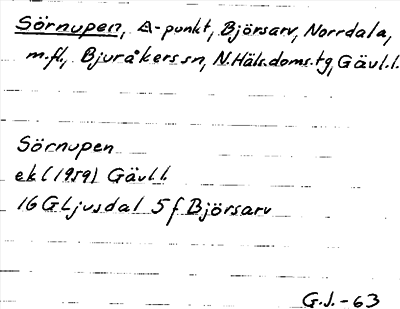 Sörnupen, △-punkt, Björsarv, Norrdala,
m.fl., Bjuråkers sn, N.Häls.doms.tg, Gävl.l.
Sörnupen
ekl (1959) Gävl l.
16G Ljusdal 5f Björsarv
G.J.-63